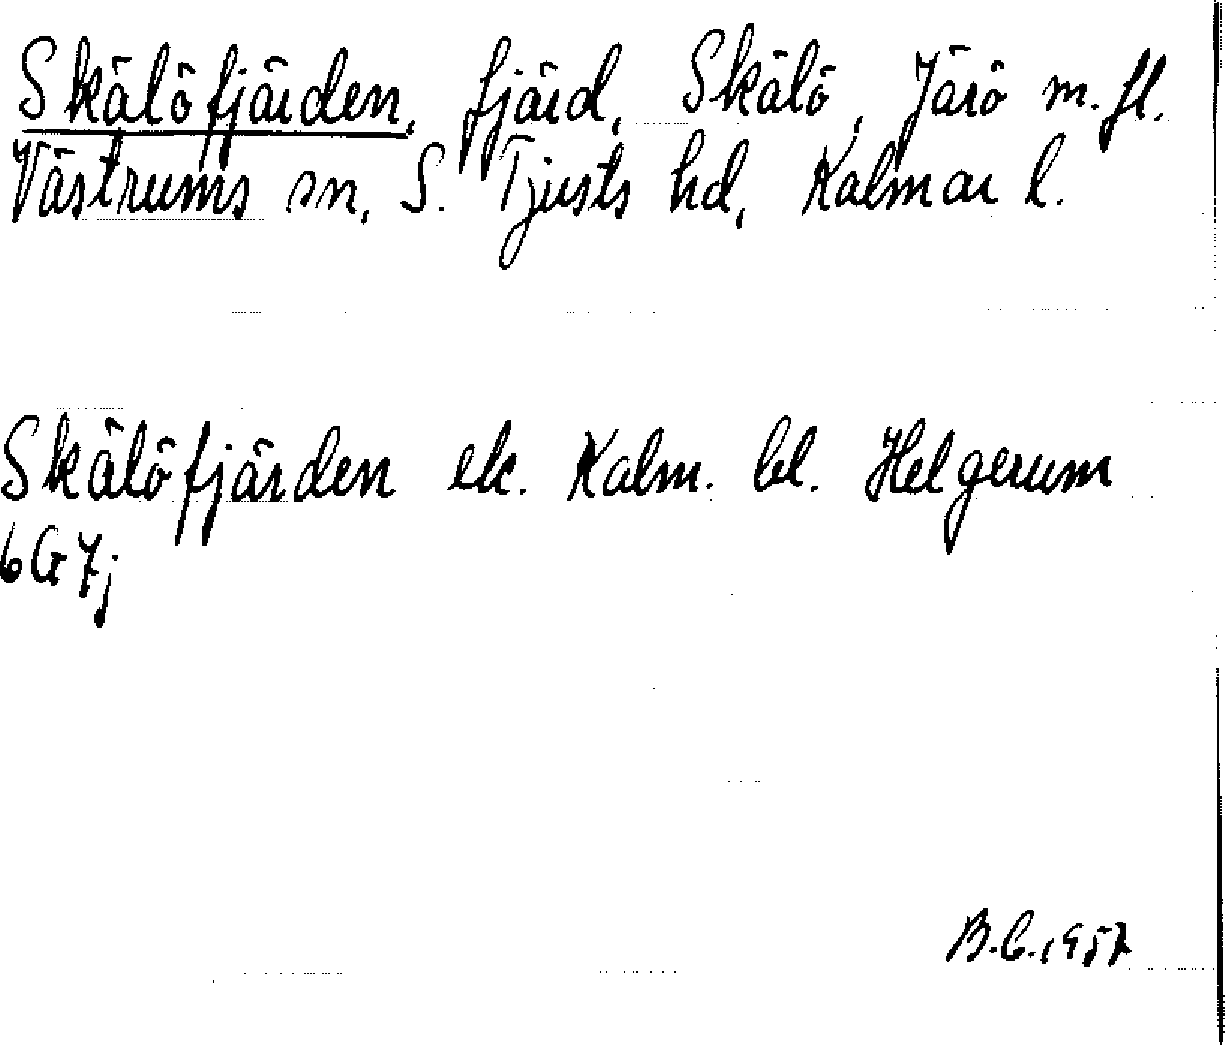 Skälöfjärden, fjärd, Skälö, Järö m.fl.
Västrums sn, S. Tjusts hd, Kalmar l.
Skälöfjärden ek. Kalm. bl. Helgerum
6G7j
B.C.1957